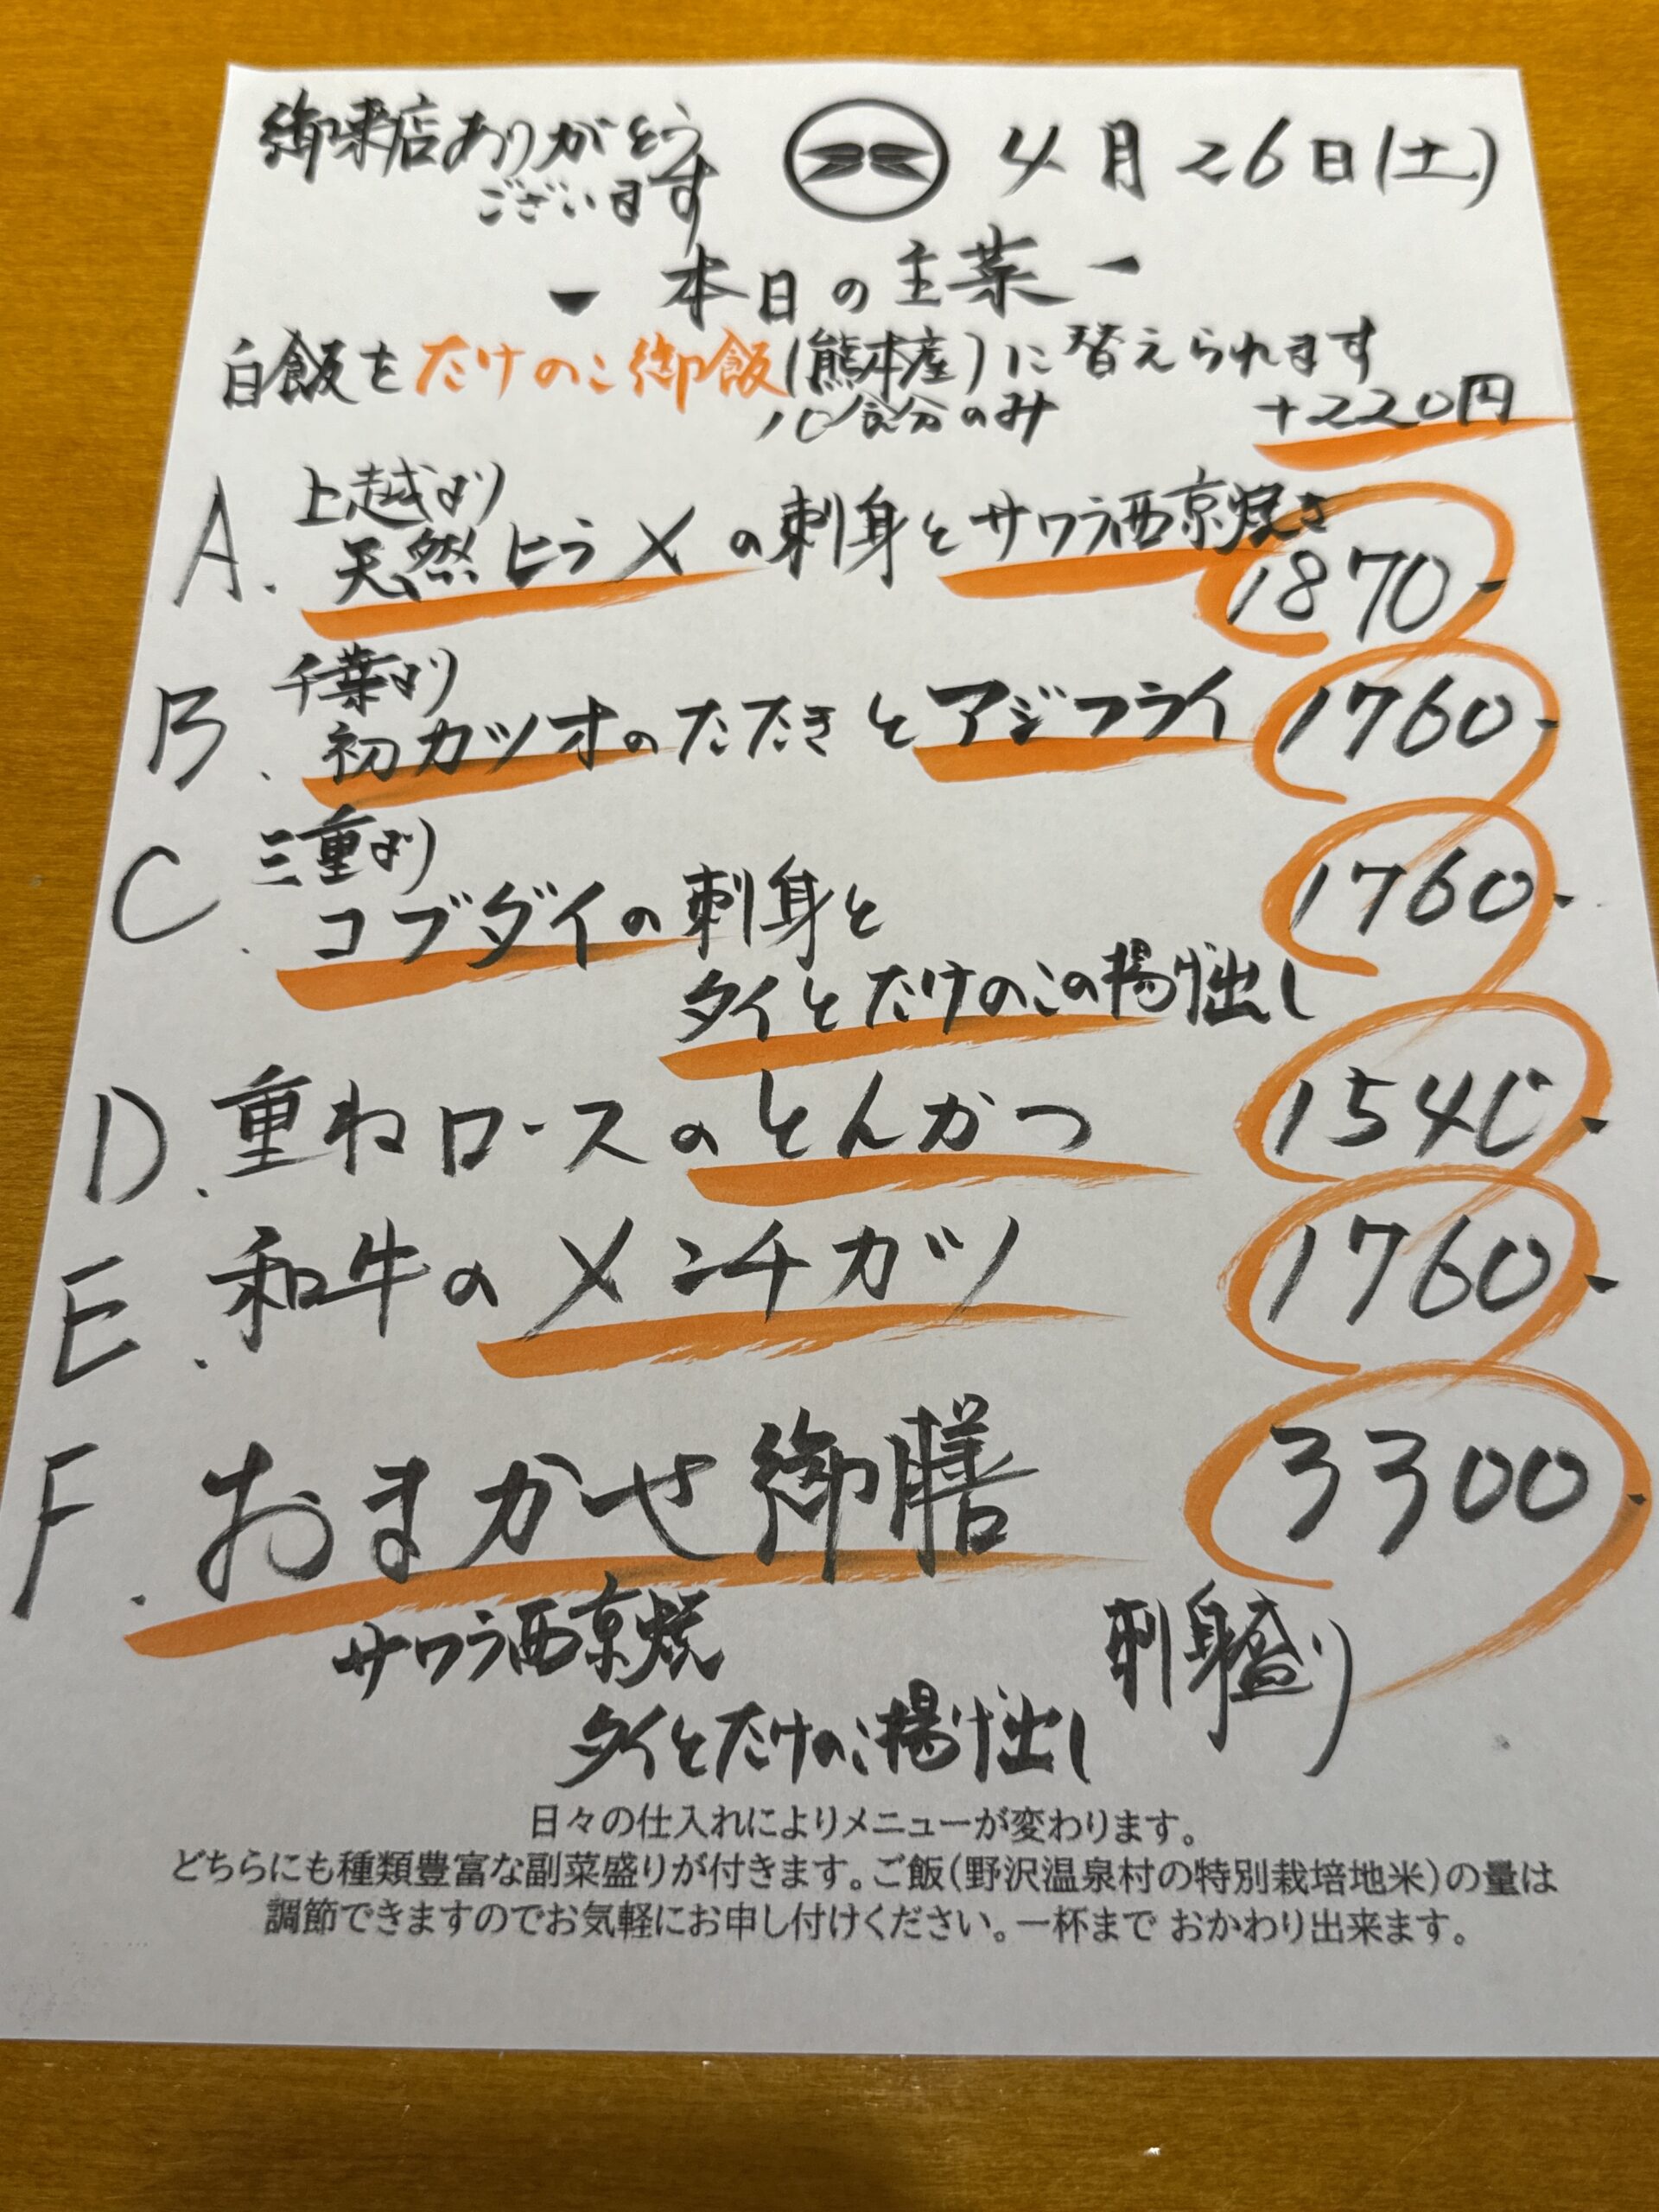 御来店ありがとう
ございます
4月26日(土)
- 本日の主菜 -
白飯をたけのこ御飯(熊本産)に替えられます
10食分のみ +220円
A. 上越より
天然ヒラメの刺身とサワラ西京焼き 1870-
B. 千葉より
初カツオのたたきとアジフライ 1760-
C. 三重より
コブダイの刺身と 1760-
タイとたけのこの揚げ出し
D. 重ねロースのとんかつ 1540-
E. 和牛のメンチカツ 1760-
F. おまかせ御膳 3300-
サワラ西京焼 刺身盛り
タイとたけのこ揚げ出し
日々の仕入れによりメニューが変わります。
どちらにも種類豊富な副菜盛りが付きます。ご飯(野沢温泉村の特別栽培地米)の量は
調節できますのでお気軽にお申し付けください。一杯まで おかわり出来ます。